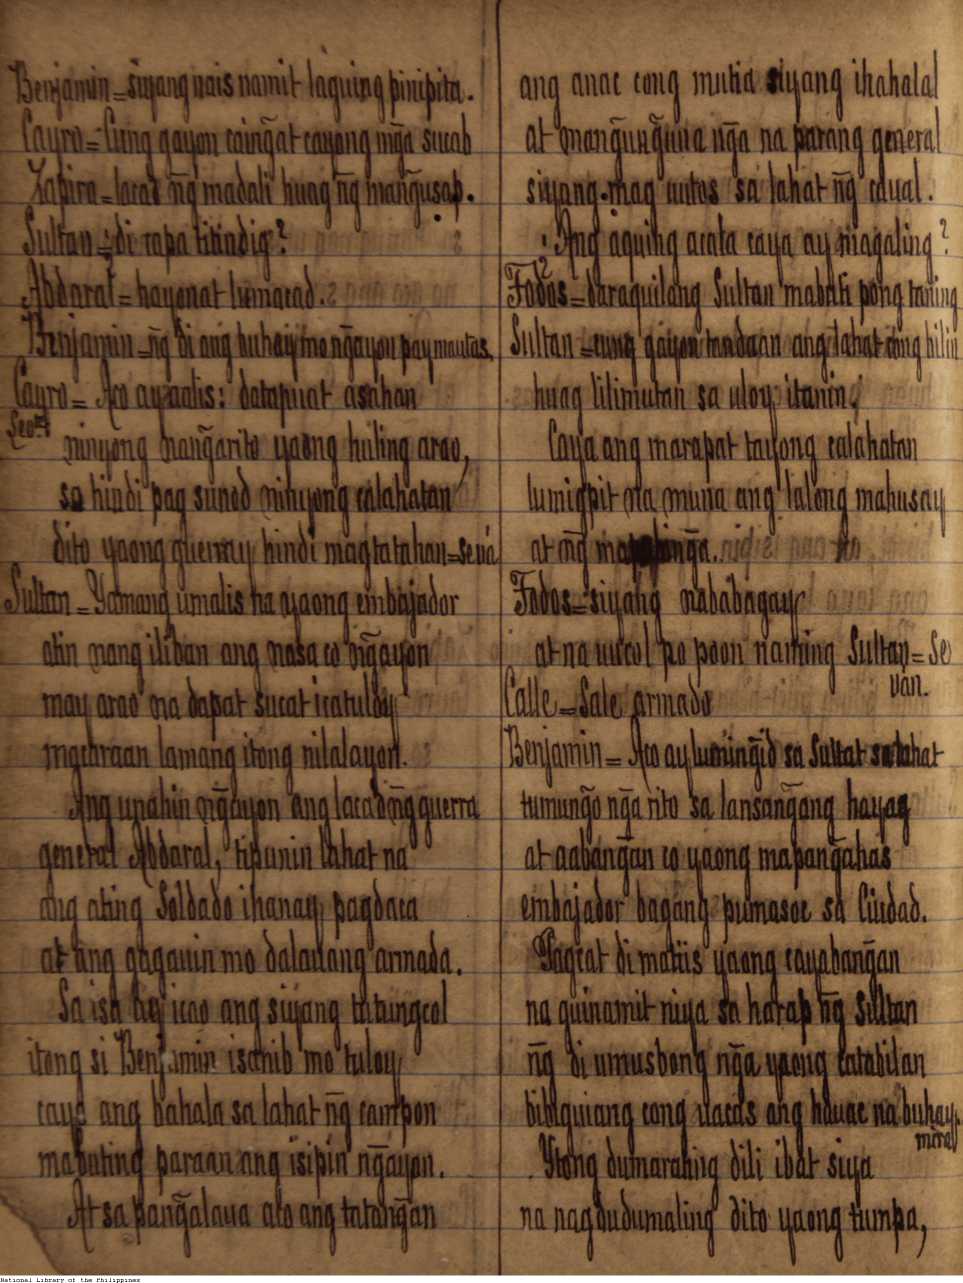 Benjamin = siyang nais namit laguing pinipita.
Cayro = Cung gayon caingat cayong mg̃a sucab
Zapiro = lacad ng̃ madali huag ng̃ mang̃usap.
Sultan = ¿di capa titindig?
Abdaral = hayonat lumacad.
Benjamin = ng̃ di ang buhay mo ng̃ayon pay mautas.
Cayro = Aco ay aalis: datapuat asahan
ninyong mang̃arito yaong huling arao,
sa hindi pag sunod ninyong calahatan
dito yaong guerray hindi magtatahan =
Sultan = Yamang umalis na yaong embajador
atin nang iliban ang nasa co ng̃ayon
may arao na dapat sucat icatuloy
macaraan lamang itong nilalayon.
Ang unahin ng̃ayon ang lacad ng̃ guerra
general Abdaral, tipunin lahat na
ang ating Soldado ihanay pagdaca
at ang gagauin mo dalauang armada.
Sa isa ay icao ang siyang tatungcol
itong si Benjamin isanib mo tuloy
cayo ang bahala sa lahat ng̃ campon
mabuting paraan ang isipin ng̃ayon.
At sa pang̃alaua ato ang tatang̃an
ang anac cong mutia siyang ihahalal
at mang̃ung̃una ng̃a na parang general
siyang mag uutos sa lahat ng̃ caual.
¿Ang aquing acata caya ay magaling?
Fodos = Caraquilang Sultan mabuti pong taning
Sultan = cung gayon tandaan ang lahat cong bilin
huag lilimutan sa uloy itanin.
Caya ang marapat tayong calahatan
lumigpit na muna ang lalong mahusay
at ng̃
Fodos = siyang nababagay
at na uucol po poon naming Sultan = Se
van.
Calle = Sale armado
Benjamin = Aco ay luming̃id sa Sultat sa lahat
tumung̃o ng̃a rito sa lansang̃ang hayag
at aabang̃an co yaong mapang̃ahas
embajador bagang pumasoc sa Ciudad.
Pagcat di matiis yaong cayabang̃an
na guinamit niya sa harap ng̃ Sultan
ng̃ di umusbong ng̃a yaong catabilan
bibiguiang cong uacas ang hauac na buhay.
mira
Ytong dumarating dili ibat siya
na nagdudumaling dito yaong tumpa,
National Library of the Philippines